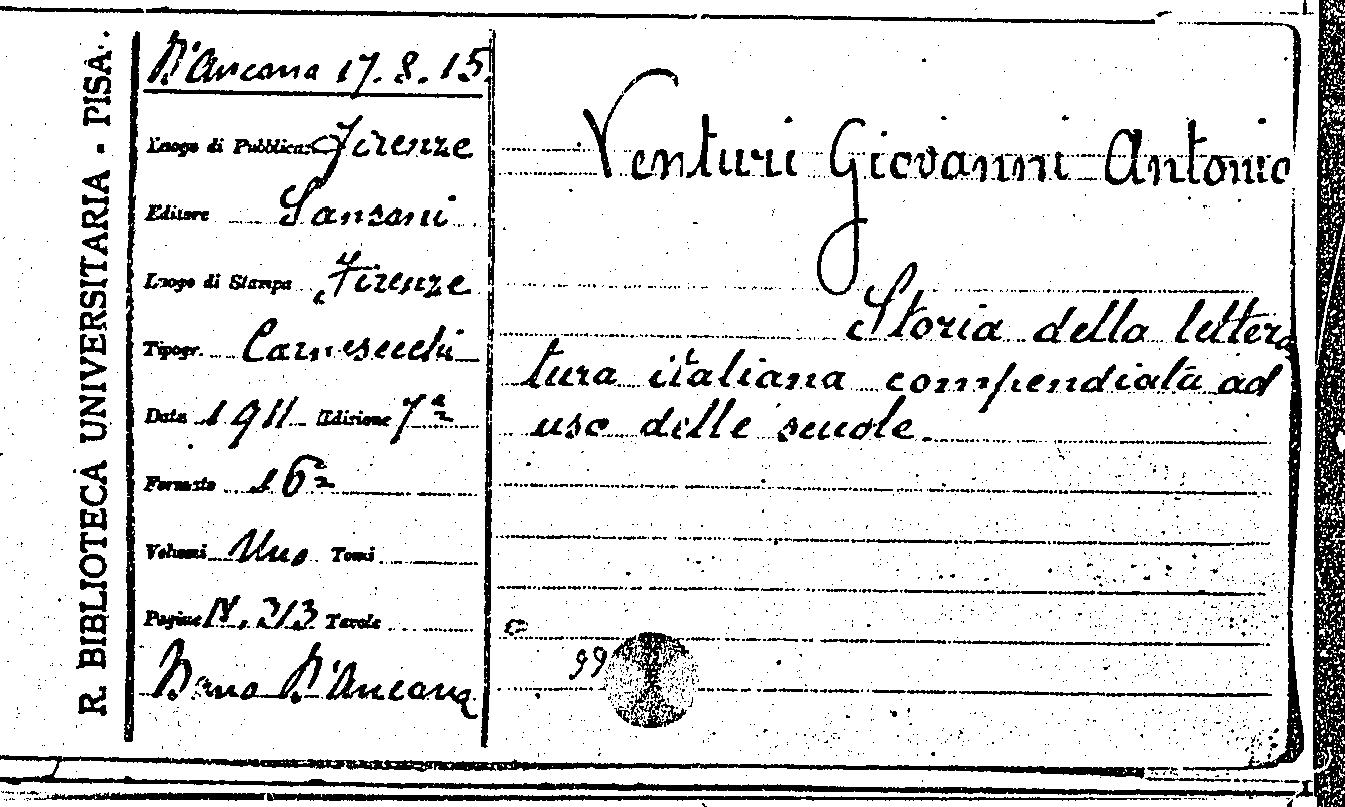 R. BIBLIOTECA UNIVERSITARIA - PISA.
D'Ancona 17. 8. 15.
Luogo di Pubblicaz. Firenze
Editore Sansoni
Luogo di Stampa Firenze
Tipogr. Carnesecchi
Data 1911 Edizione 7ª
Formato 16º
Volumi Uno Tomi
Pagine IV, 313 Tavole
Dono D'Ancona
Venturi Giovanni Antonio
Storia della lettera
tura italiana compendiata ad
uso delle scuole.
99